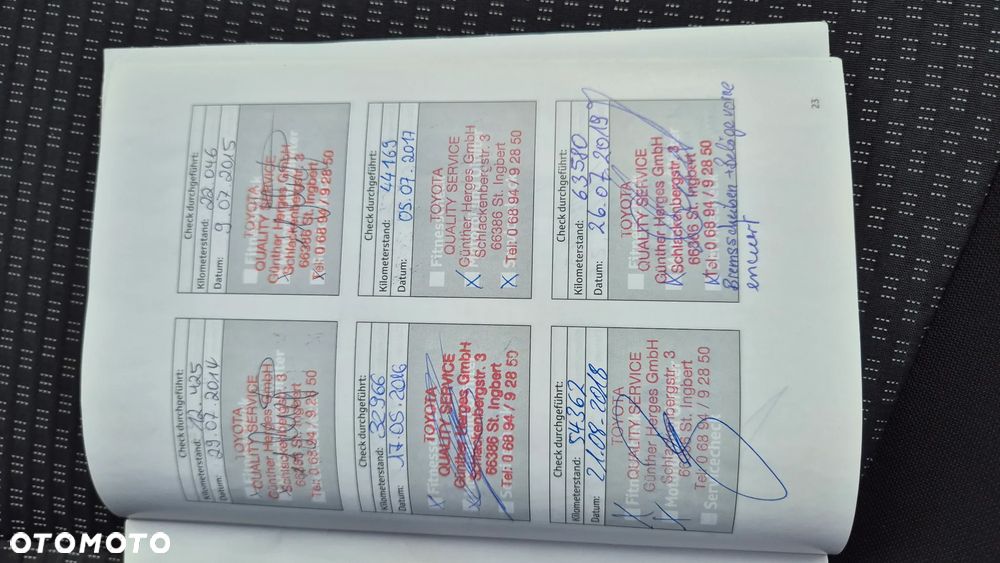 Check durchgeführt:
Kilometerstand: 12 425
Datum: 29.07.2014
TOYOTA
QUALITY SERVICE
Günther Herges GmbH
Schlackenbergstr. 3
66386 St. Ingbert
Tel: 0 68 94 / 9 28 50
Check durchgeführt:
Kilometerstand: 22 046
Datum: 9.07.2015
TOYOTA
QUALITY SERVICE
Günther Herges GmbH
Schlackenbergstr. 3
66386 St. Ingbert
Tel: 0 68 94 / 9 28 50
Check durchgeführt:
Kilometerstand: 32966
Datum: 17.05.2016
TOYOTA
QUALITY SERVICE
Günther Herges GmbH
Schlackenbergstr. 3
66386 St. Ingbert
Tel: 0 68 94 / 9 28 50
Check durchgeführt:
Kilometerstand: 44169
Datum: 05.07.2017
TOYOTA
QUALITY SERVICE
Günther Herges GmbH
Schlackenbergstr. 3
66386 St. Ingbert
Tel: 0 68 94 / 9 28 50
Check durchgeführt:
Kilometerstand: 54362
Datum: 21.09.2018
TOYOTA
QUALITY SERVICE
Günther Herges GmbH
Schlackenbergstr. 3
66386 St. Ingbert
Tel: 0 68 94 / 9 28 50
Servicecheck
Check durchgeführt:
Kilometerstand: 63580
Datum: 26.07.2019
TOYOTA
QUALITY SERVICE
Günther Herges GmbH
Schlackenbergstr. 3
66386 St. Ingbert
Tel: 0 68 94 / 9 28 50
Bremsscheiben + Beläge vorne
erneuert
23
OTOMOTO